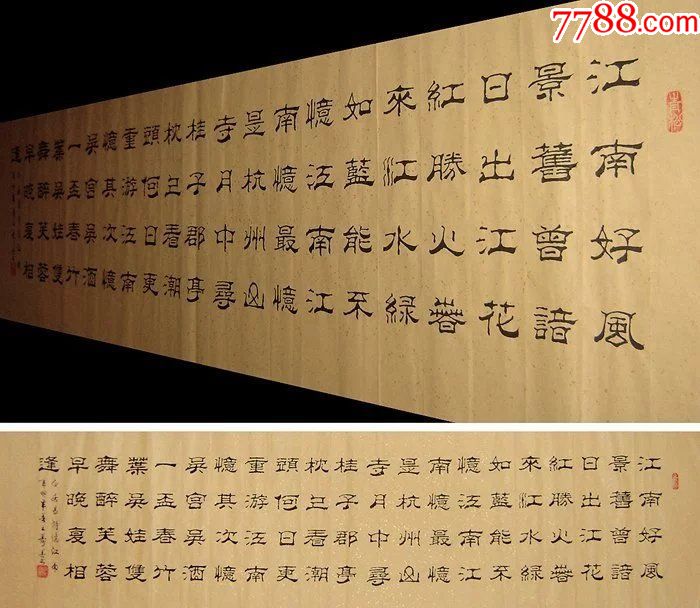 7788.com
江南好風
景舊曾諳
日出江花
紅勝火春
來江水綠
如藍能不
憶江南江
南憶最憶
是杭州山
寺月中尋
桂子郡亭
枕上看潮
頭何日更
重游江南
憶其次憶
吳宮吳酒
一盃春竹
葉吳娃雙
舞醉芙蓉
早晚復相
逢
江南好風
景舊曾諳
日出江花
紅勝火春
來江水綠
如藍能不
憶江南江
南憶最憶
是杭州山
寺月中尋
桂子郡亭
枕上看潮
頭何日更
重游江南
憶其次憶
吳宮吳酒
一盃春竹
葉吳娃雙
舞醉芙蓉
早晚復相
逢
白居易詩憶江南